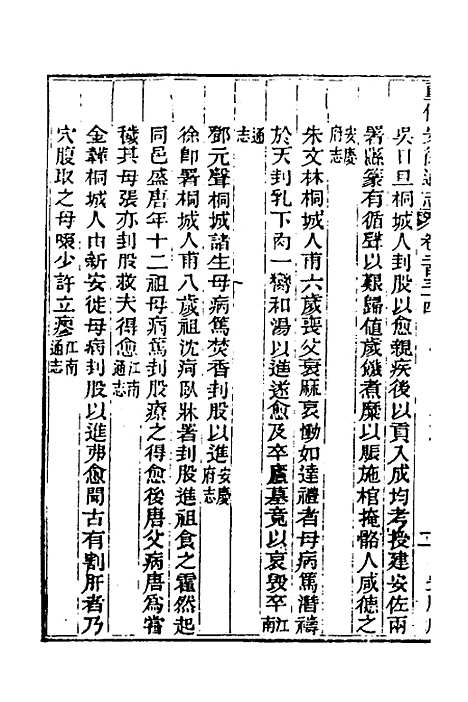 吳日旦桐城人刲股以愈親疾後以貢入成均考授建安佐兩
署縣篆有循聲以艱歸值歲饑煮糜以賑施棺掩骼人咸德之
安慶府志
朱文林桐城人甫六歲喪父衰麻哀慟如達禮者母病篤潛禱
於天刲乳下肉一臠和湯以進遂愈及卒廬墓竟以哀毀卒江南
通志
鄧元聲桐城諸生母病篤焚香刲股以進安慶府志
徐即署桐城人甫八歲祖沈疴臥牀署刲股進祖食之霍然起
同邑盛唐年十二祖母病篤刲股療之得愈後唐父病唐為嘗
穢其母張亦刲股救夫得愈江南通志
金鉌桐城人由新安徙母病刲股以進弗愈聞古有割肝者乃
穴腹取之母啜少許立瘳江南通志